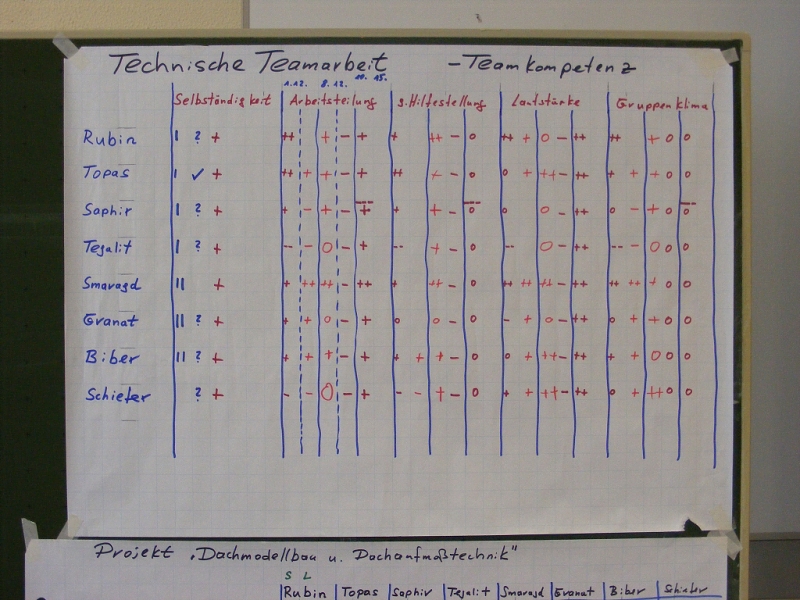 Technische Teamarbeit - Teamkompetenz
1.12. 8.12. 10. 15.
Selbständigkeit Arbeitsteilung g. Hilfestellung Lautstärke Gruppenklima
Rubin I ? + ++ + - + + ++ - o ++ + o - ++ ++ + o o
Topas I ✓ + ++ + + - + ++ + - o o + ++ - ++ + + + o o
Saphir I ? + + - + - + + + - o o o - ++ o - + o o
Tegalit I ? + -- - o - + -- + - o -- o - ++ -- - o o o
Smaragd II + + ++ ++ - ++ + ++ - o ++ ++ ++ - ++ ++ ++ + o o
Granat II ? + + + o - + o o - o - + o - ++ o + + o o
Biber II ? + + + + - + + + + - o o + ++ - ++ + + o o o
Schiefer ? + - - o - + - - + - o + + ++ - ++ o + ++ o o
Projekt „Dachmodellbau u. Dachaufmaßtechnik"
S L
Rubin Topas Saphir Tegalit Smaragd Granat Biber Schiefer